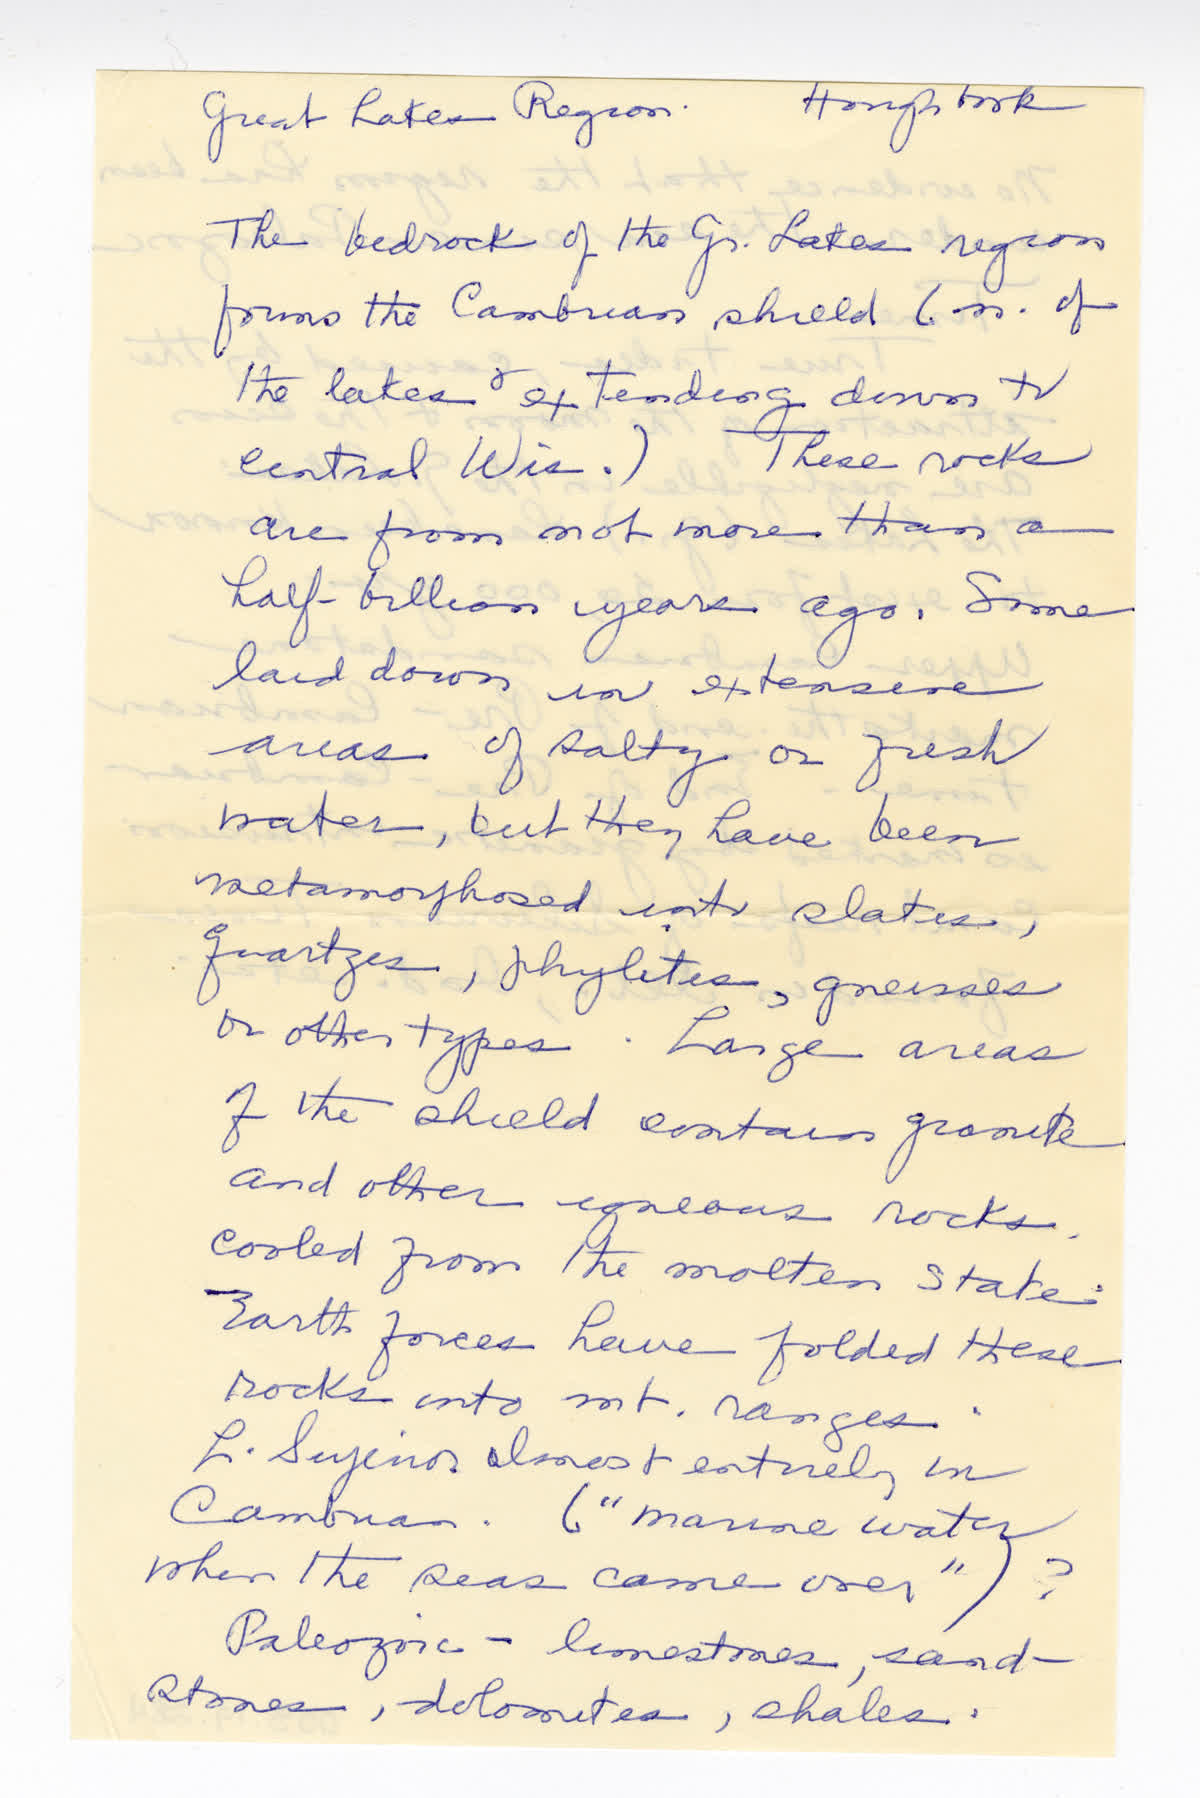 Great Lakes Region. Hough book
The bedrock of the Gr. Lakes region
forms the Cambrian shield (n. of
the lakes & extending down to
central Wis.) These rocks
are from not more than a
half-billion years ago. Some
laid down in extensive
areas of salty or fresh
water, but they have been
metamorphosed into slates,
quartzes, phylites, gneisses
or other types. Large areas
of the shield contain granite
and other igneous rocks.
cooled from the molten state.
Earth forces have folded these
rocks into mt. ranges.
L. Superior almost entirely in
Cambrian. ("marine water
when the seas came over")?
Paleozoic - limestones, sand-
stones, dolomites, shales.